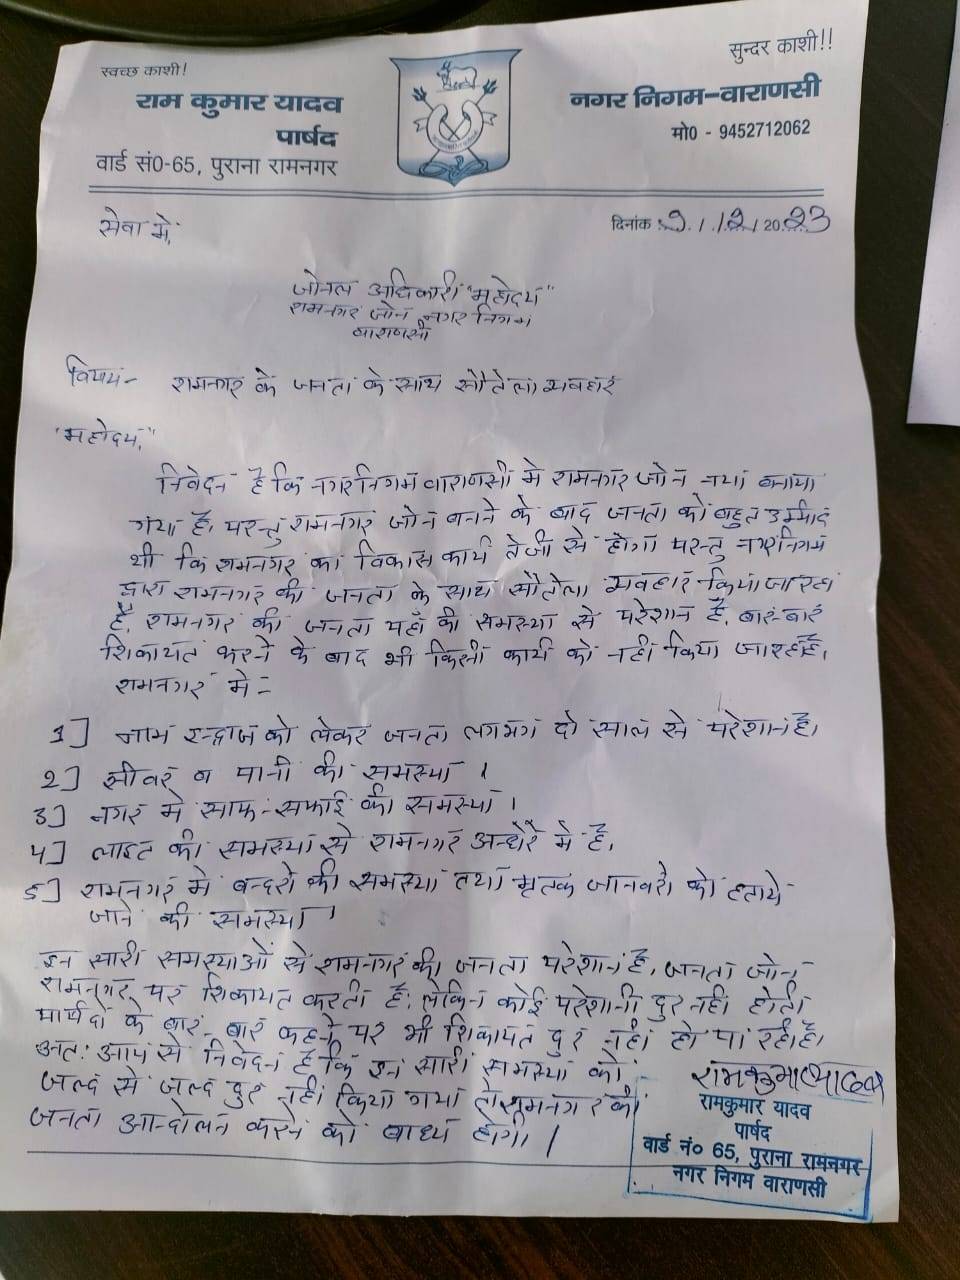 स्वच्छ काशी!
सुन्दर काशी!!
राम कुमार यादव
पार्षद
वार्ड सं0-65, पुराना रामनगर
नगर निगम-वाराणसी
मो0 - 9452712062
सेवा में,
दिनांक 9/12/2023
जोनल अधिकारी "महोदय"
रामनगर जोन नगर निगम
वाराणसी
विषय- रामनगर के जनता के साथ सौतेला व्यवहार
"महोदय,"
निवेदन है कि नगर निगम वाराणसी मे रामनगर जोन नया बनाया
गया है। परन्तु रामनगर जोन बनने के बाद जनता को बहुत उम्मीद
थी कि रामनगर का विकास कार्य तेजी से होगा परन्तु नगर निगम
द्वारा रामनगर की जनता के साथ सौतेला व्यवहार किया जा रहा
है, रामनगर की जनता यहाँ की समस्या से परेशान है, बार-बार
शिकायत करने के बाद भी किसी कार्य को नही किया जा रहा है।
रामनगर मे -
1] नाम इन्द्राज को लेकर जनता लगभग दो साल से परेशान है।
2] सीवर व पानी की समस्या।
3] नगर मे साफ-सफाई की समस्या।
4] लाइट की समस्या से रामनगर अन्धेरे मे है,
5] रामनगर मे बन्दरो की समस्या तथा मृतक जानवरो को हटाये
जाने की समस्या।
इन सारी समस्याओं से रामनगर की जनता परेशान है, जनता जोन
रामनगर पर शिकायत करती है, लेकिन कोई परेशानी दुर नही होती
पार्षदो के बार बार कहने पर भी शिकायत दुर नही हो पा रही है।
अतः आप से निवेदन है कि इन सारी समस्या को
जल्द से जल्द दुर नही किया गया तो रामनगर की
जनता आन्दोलन करने को बाध्य होगी।
रामकुमार यादव
रामकुमार यादव
पार्षद
वार्ड नं० 65, पुराना रामनगर
नगर निगम वाराणसी